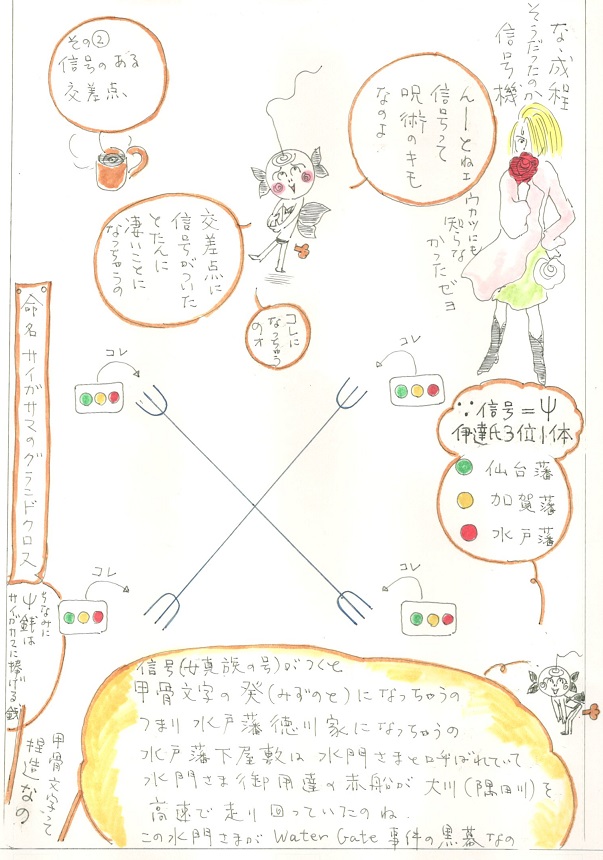 な、成程
そうだったのか
信号機
その②
信号の ある
交差点
んーとねェ
信号って
呪術のキモ
なのよ
ウカツにも
知らな
かったゼヨ
交差点に
信号がついた
とたんに
凄いことに
なっちゃうの
コレに
なっちゃう
のォ
命名 サイガサマのグランドクロス
コレ
コレ
コレ
コレ
∵信号=Ψ
伊達氏3位1体
仙台藩
加賀藩
水戸藩
ちなみに
Ψ銭は
サイガサマに捧げる銭
甲骨文字って
捏造なの
信号(女真族の号)がつくと
甲骨文字の癸(みずのと)になっちゃうの
つまり水戸藩徳川家になっちゃうの
水戸藩下屋敷は水門さまと呼ばれていて
水門さま御用達の赤船が大川(隅田川)を
高速で走り回っていたのね
この水門さまがWater Gate事件の黒幕なの